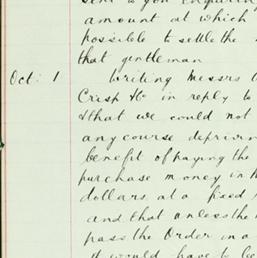 sent to you enquiring
amount at which
possible to settle the
that gentleman
Oct: 1 Writing Messrs
Crisp & Co in reply to
& that we could not
any course deprivin
benefit of paying the
purchase money in
dollars at a fixed
and that unless the
pass the Order in a
it would have to be